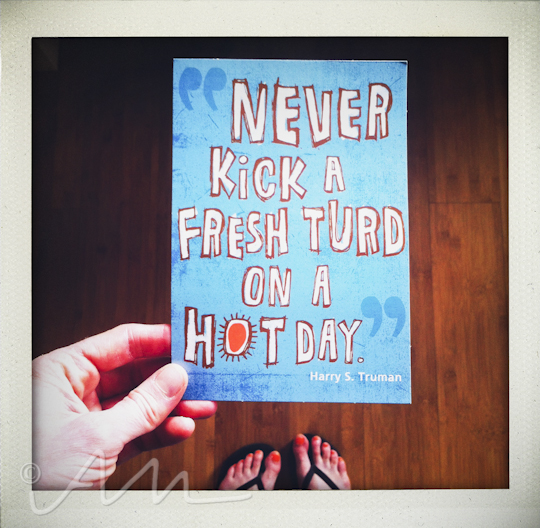 “NEVER
KiCK A
FRESH TURD
ON A
HOT DAY.”
Harry S. Truman
© AM